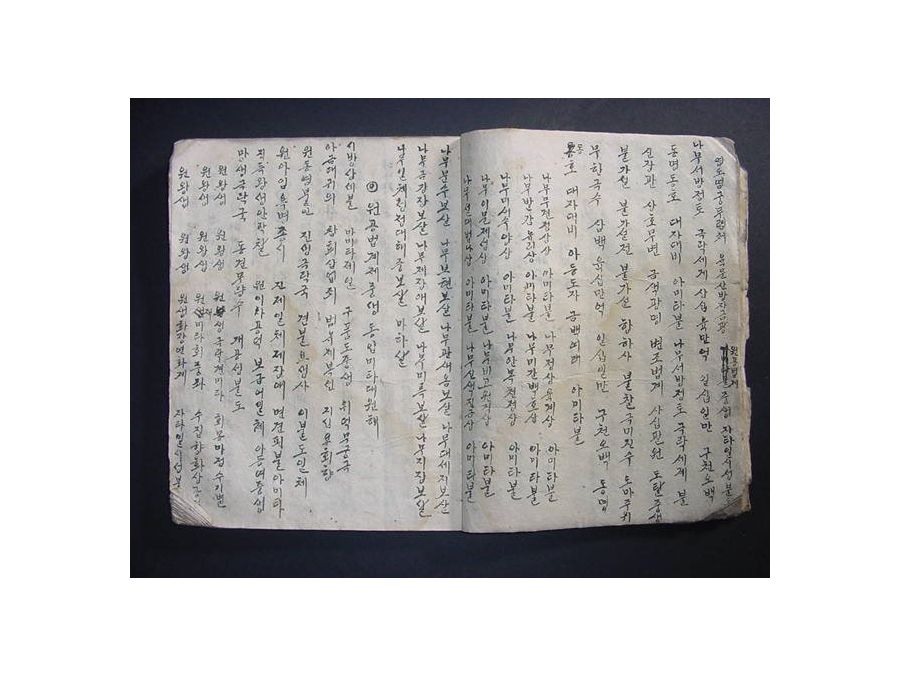 육문상방자금광 원공법계 중생 자타일시성불
나무서방정토 극락세계 삼십육만억 일십일만 구천오백
동명동호 대자대비 아미타불 나무서방정토 극락세계 불
신장관 상호무변 금색광명 변조법계 사십팔원 도탈중생
불가설 불가설전 불가설 항하사 불찰국미진수 도마주위
무한극수 삼백육십만억 일십일만 구천오백 동명
동호 대자대비 아등도사 금백여래 아미타불
나무무견정상상 아미타불 나무정상육계상 아미타불
나무발감유리상 아미타불 나무미간백호상 아미타불
나무미서수양상 아미타불 나무안목청정상 아미타불
나무이문제성상 아미타불 나무비고원직상 아미타불
나무설대법상 아미타불 나무신색진금상 아미타불
나무문수보살 나무보현보살 나무관세음보살 나무대세지보살
나무금강장보살 나무제장애보살 나무미륵보살 나무지장보살
나무일체청정대해중보살 마하살
원공법계제중생 동입미타대원해
시방삼세불 아미타제일 구품도중생 위덕무궁극
아금대귀의 참회삼업죄 범유제복선 지심용회향
원동염불인 진생극락국 견불요생사 여불도일체
원아임욕명종시 진제일체제장애 면견피불아미타
즉득왕생안락찰 원이차공덕 보급어일체 아등여중생
당생극락국 동견무량수 개공성불도
원왕생 원왕생 원생극락견미타 획몽마정수기별
원왕생 원왕생 원재미타회중좌 수집향화상공양
원왕생 원왕생 원생화장연화계 자타일시성불